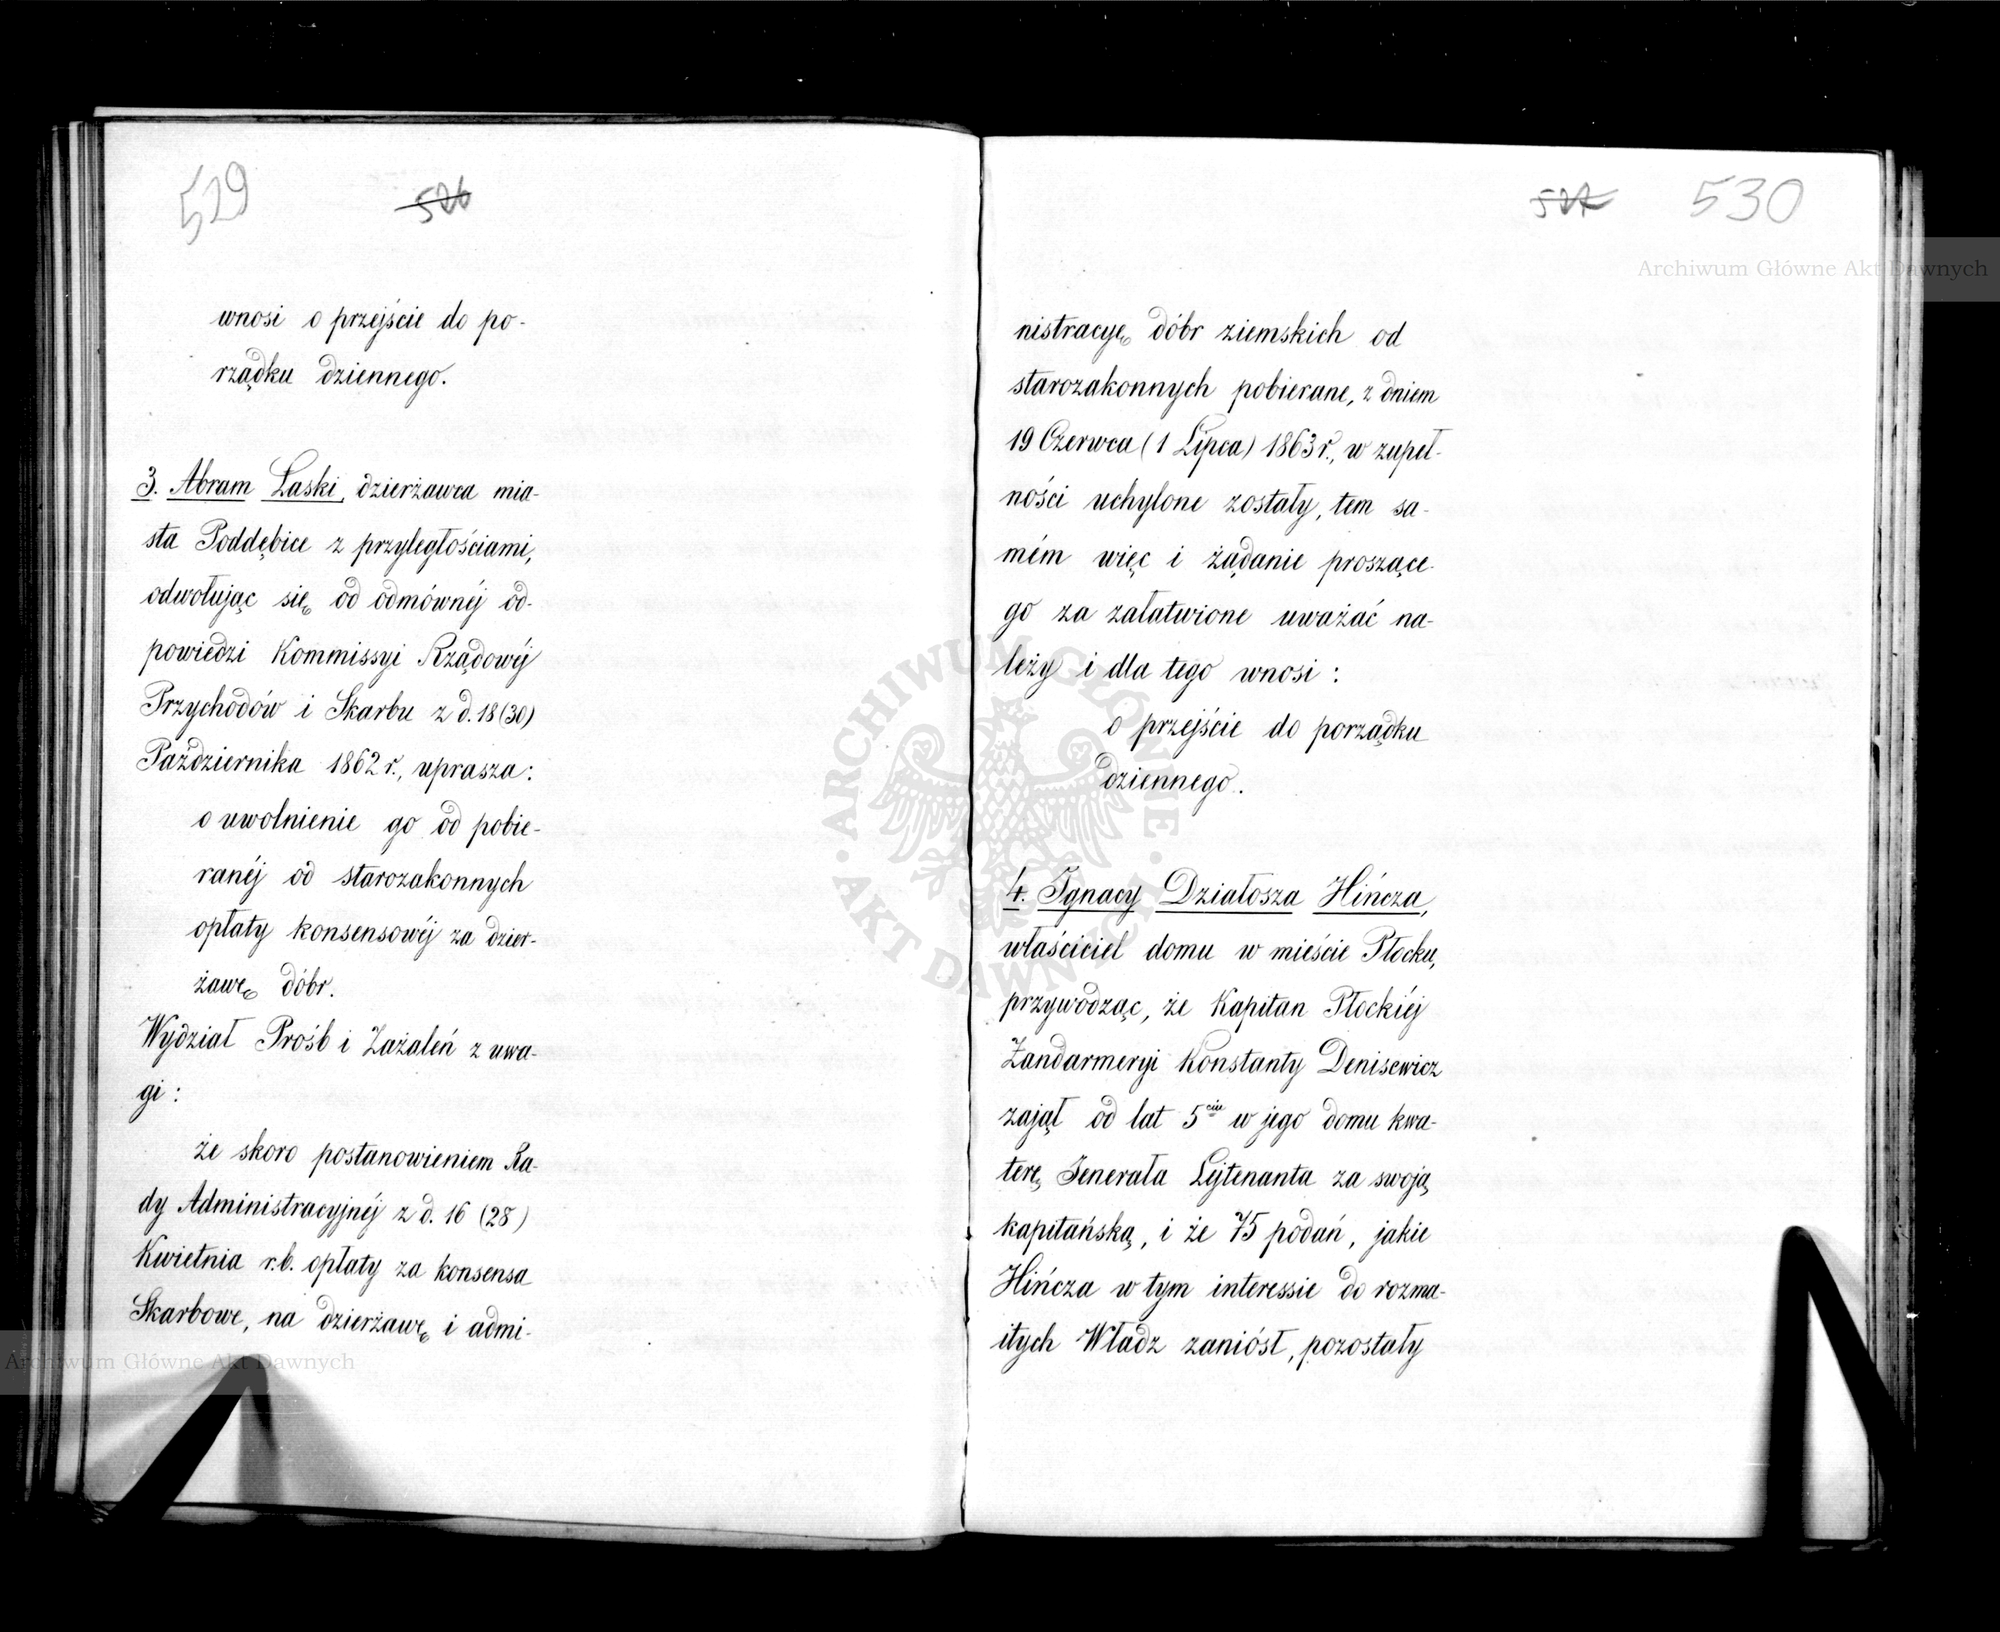 529
526
wnosi o przejście do po-
rządku dziennego.
3. Abram Laski, dzierżawca mia-
sta Poddębice z przyległościami,
odwołując się od odmównéj od-
powiedzi Kommissyi Rządowéj
Przychodów i Skarbu z d. 18 (30)
Października 1862 r., uprasza:
o uwolnienie go od pobie-
ranéj od starozakonnych
opłaty konsensowéj za dzier-
żawę dóbr.
Wydział Prośb i Zażaleń z uwa-
gi:
że skoro postanowieniem Ra-
dy Administracyjnéj z d. 16 (28)
Kwietnia r.b. opłaty za konsensa
Skarbowe, na dzierżawę i admi-
527
530
nistracyę dóbr ziemskich od
starozakonnych pobierane, z dniem
19 Czerwca (1 Lipca) 1863 r., w zupeł-
ności uchylone zostały, tem sa-
mém więc i żądanie proszące-
go za załatwione uważać na-
leży i dla tego wnosi:
o przejście do porządku
dziennego.
4. Ignacy Działosza Hińcza,
właściciel domu w mieście Płocku,
przywodząc, że Kapitan Płockiéj
Żandarmeryi Konstanty Denisewicz
zajął od lat 5ciu w jego domu kwa-
terę Jenerała Lejtenanta za swoją
kapitańską, i że 75 podań, jakie
Hińcza w tym interessie do rozma-
itych Władz zaniósł, pozostały
Archiwum Główne Akt Dawnych
ARCHIWUM GŁÓWNE AKT DAWNYCH
Archiwum Główne Akt Dawnych